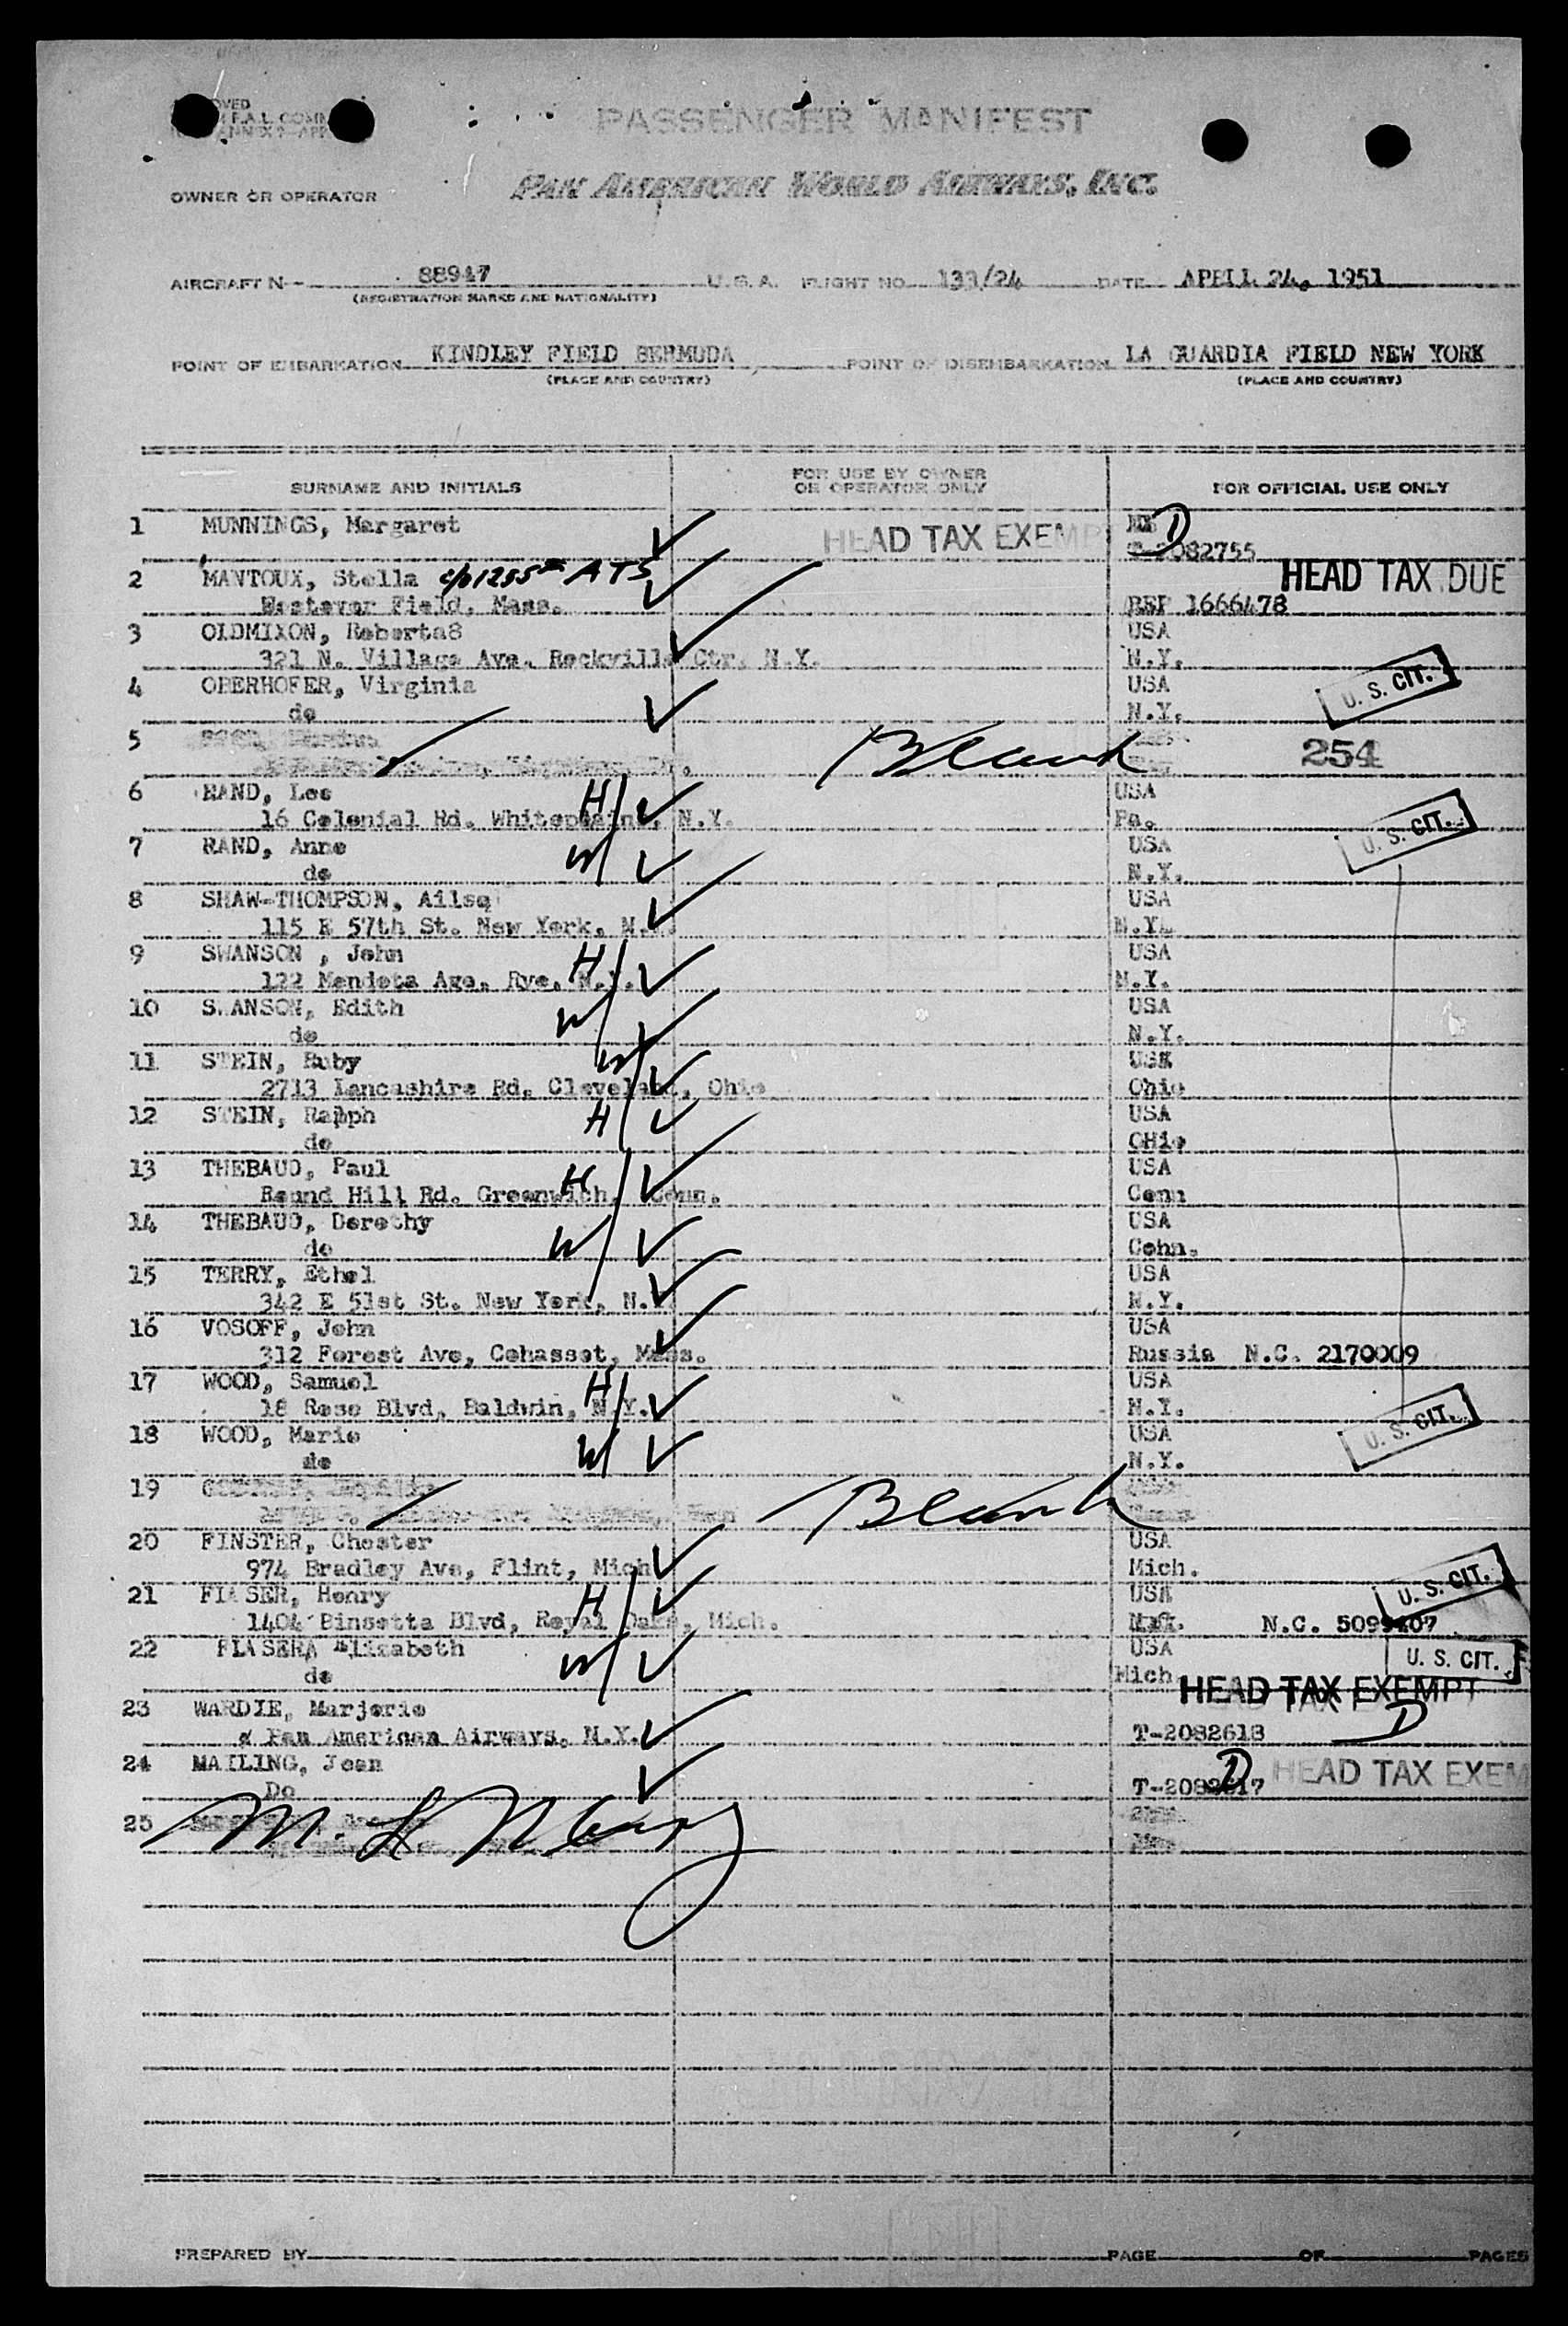 PASSENGER MANIFEST
OWNER OR OPERATOR PAN AMERICAN WORLD AIRWAYS, INC.
AIRCRAFT N 88947 U.S.A. FLIGHT NO. 133/24 DATE APRIL 24, 1951
(REGISTRATION MARKS AND NATIONALITY)
POINT OF EMBARKATION KINDLEY FIELD BERMUDA POINT OF DISEMBARKATION LA GUARDIA FIELD NEW YORK
(PLACE AND COUNTRY) (PLACE AND COUNTRY)
FOR USE BY OWNER
SURNAME AND INITIALS OR OPERATOR ONLY FOR OFFICIAL USE ONLY
1 MUNNINGS, Margaret HEAD TAX EXEMP D
2082755
2 MANTOUX, Stella c/o 1255th ATS HEAD TAX DUE
Westover Field, Mass. REP 1666478
3 OLDMIXON, Roberta8 USA
321 N. Village Ave. Rockville Ctr. N.Y. N.Y.
4 OBERHOFER, Virginia USA U. S. CIT.
do N.Y.
5 Blank 254
6 RAND, Lee H USA
16 Colonial Rd. Whiteplains, N.Y. Pa. U. S. CIT.
7 RAND, Anne W USA
do N.Y.
8 SHAW-THOMPSON, Ailsa USA
115 E 57th St. New York, N.Y. N.Y.
9 SWANSON , John H USA
122 Mendota Ave. Rye, N.Y. N.Y.
10 S.ANSON, Edith W USA
do N.Y.
11 STEIN, Ruby W USA
2713 Lancashire Rd. Cleveland, Ohio Ohio
12 STEIN, Ralph H USA
do OHio
13 THEBAUD, Paul H USA
Round Hill Rd. Greenwich, Conn. Conn
14 THEBAUD, Dorothy W USA
do Conn.
15 TERRY, Ethel USA
342 E 51st St. New York, N.Y. N.Y.
16 VOSOFF, John USA
312 Forest Ave, Cohasset, Mass. Russia N.C. 2170009
17 WOOD, Samuel H USA
18 Rose Blvd, Baldwin, N.Y. N.Y. U. S. CIT.
18 WOOD, Marie W USA
do N.Y.
19 Blank
20 FINSTER, Chester USA
974 Bradley Ave, Flint, Mich Mich. U. S. CIT.
21 FIASER, Henry H USA
1404 Binsetta Blvd, Royal Oaks, Mich. N.C.
22 FIASERA Elizabeth W USA U. S. CIT.
do Mich HEAD TAX EXEMPT
23 WARDIE, Marjorie
Pan American Airways, N.Y. T-2082618 D
24 MAILING, Jean D HEAD TAX EXEM
Do T-2082617
25
PREPARED BY PAGE OF PAGES